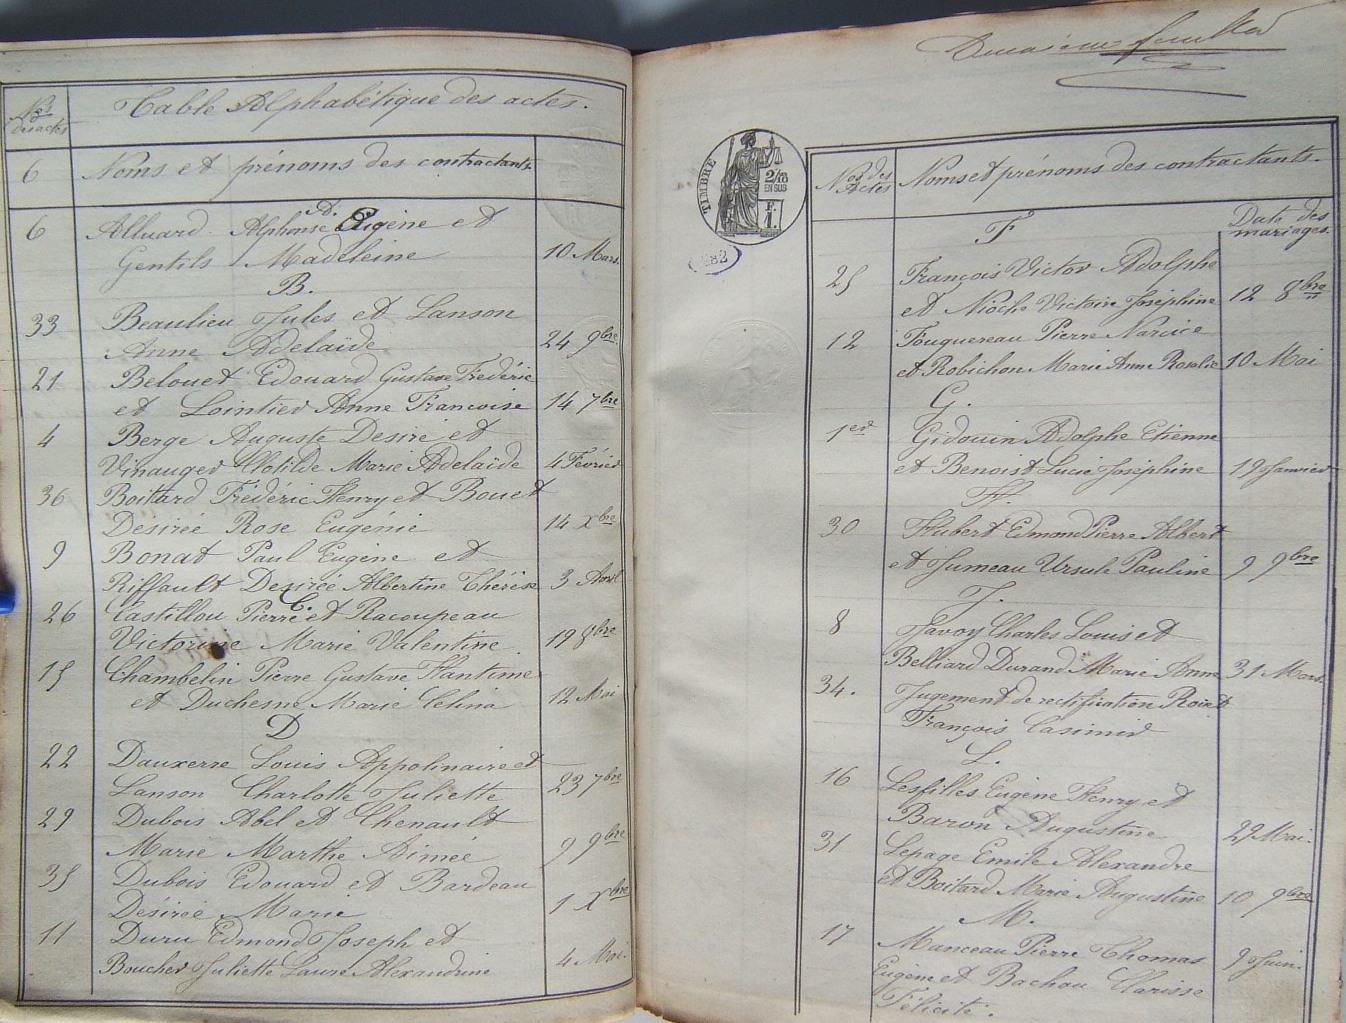 Nos
des actes
Table Alphabétique des actes.
6 Noms et prénoms des contractants
A.
6 Alluard Alphonse Eugène et
Gentils Madeleine 10 Mars.
B.
33 Beaulieu Jules et Lanson
Anne Adelaïde 24 9bre
21 Belouet Edouard Gustave Frédéric
et Lointier Anne Francoise 14 7bre
4 Berge Auguste Desiré et
Vinauger Clotilde Marie Adelaïde 4 Février
36 Boitard Frédéric Henry et Bouet
Desirée Rose Eugénie 14 Xbre
9 Bonat Paul Eugène et
Riffault Desirée Albertine Thérèse 3 Avril
C.
26 Castillou Pierre et Racoupeau
Victorine Marie Valentine 19 8bre
15 Chambelin Pierre Gustave
et Duchesne Marie Celina 12 Mai
D
22 Dauxerre Louis Appolinaire et
Lanson Charlotte Juliette 23 7bre
29 Dubois Abel et Chenault
Marie Marthe Aimée 9 9bre
35 Dubois Edouard et Bardeau
Désirée Marie 1 Xbre
11 Duru Edmond Joseph et
Boucher Juliette Laure Alexandrine 4 Mai.
feuillet
TIMBRE
2/10
EN SUS
F.
1.
282
Nos des
Actes
Noms et prénoms des contractants.
Date des
mariages.
F
25 François Victor Adolphe
et Nioche Victoire Joséphine 12 8bre
12 Fouquereau Pierre Narcice
et Robichon Marie Anne Rosalie 10 Mai
G.
1er Gidouin Adolphe Etienne
et Benoist Lucie Joséphine 19 Janvier
H.
30 Hubert Edmond Pierre Albert
et Jumeau Ursule Pauline 9 9bre
J.
8 Javoy Charles Louis et
Belliard Durand Marie Anne 31 Mars.
34. Jugement de rectification
François Casimir
L.
16 Lesfilles Eugène Henry et
Baron Augustine 22 Mai.
31 Lepage Emile Alexandre
et Boitard Marie Augustine 10 9bre
M.
17 Manceau Pierre Thomas
Eugène et Bachou Clarisse 9 Juin.
Félicité.